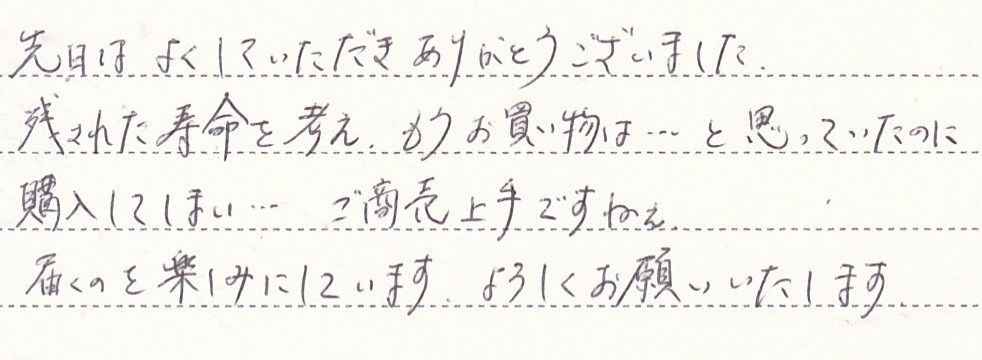 先日は よくしていただき ありがとうございました.
残された寿命を考え. もうお買い物は… と思っていたのに
購入してしまい… ご商売上手ですねぇ.
届くのを楽しみにしています. よろしくお願いいたします.